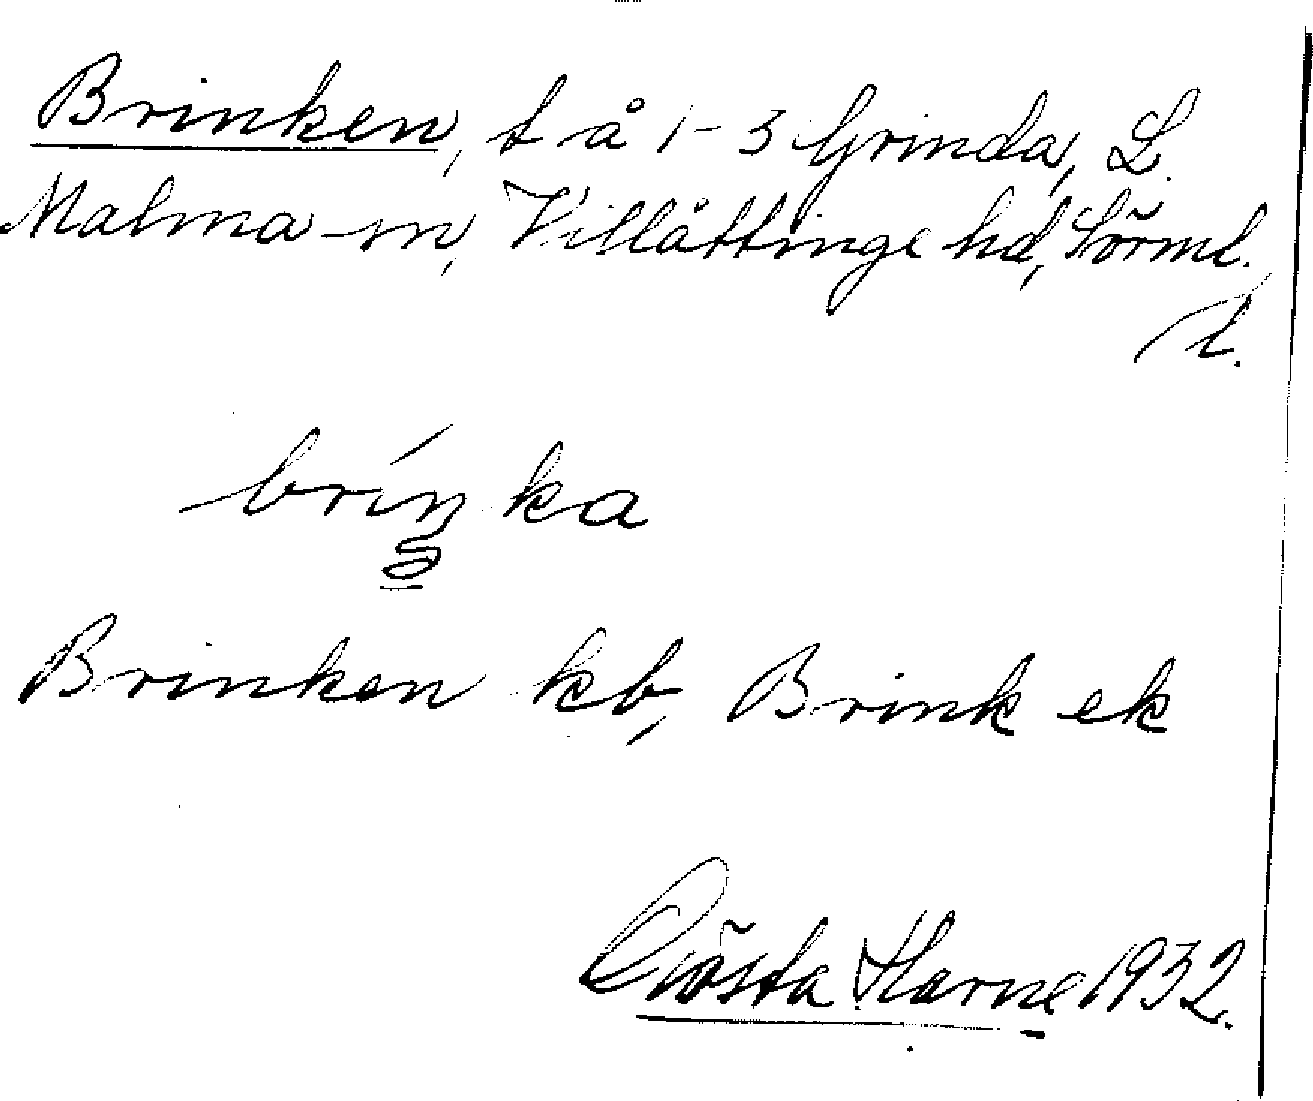 Brinken, t å 1-3 Grinda, L.
Malma sn, Villåttinge hd, Sörml.
l.
bríŋka
Brinken kb, Brink ek
Gösta Harne 1932.